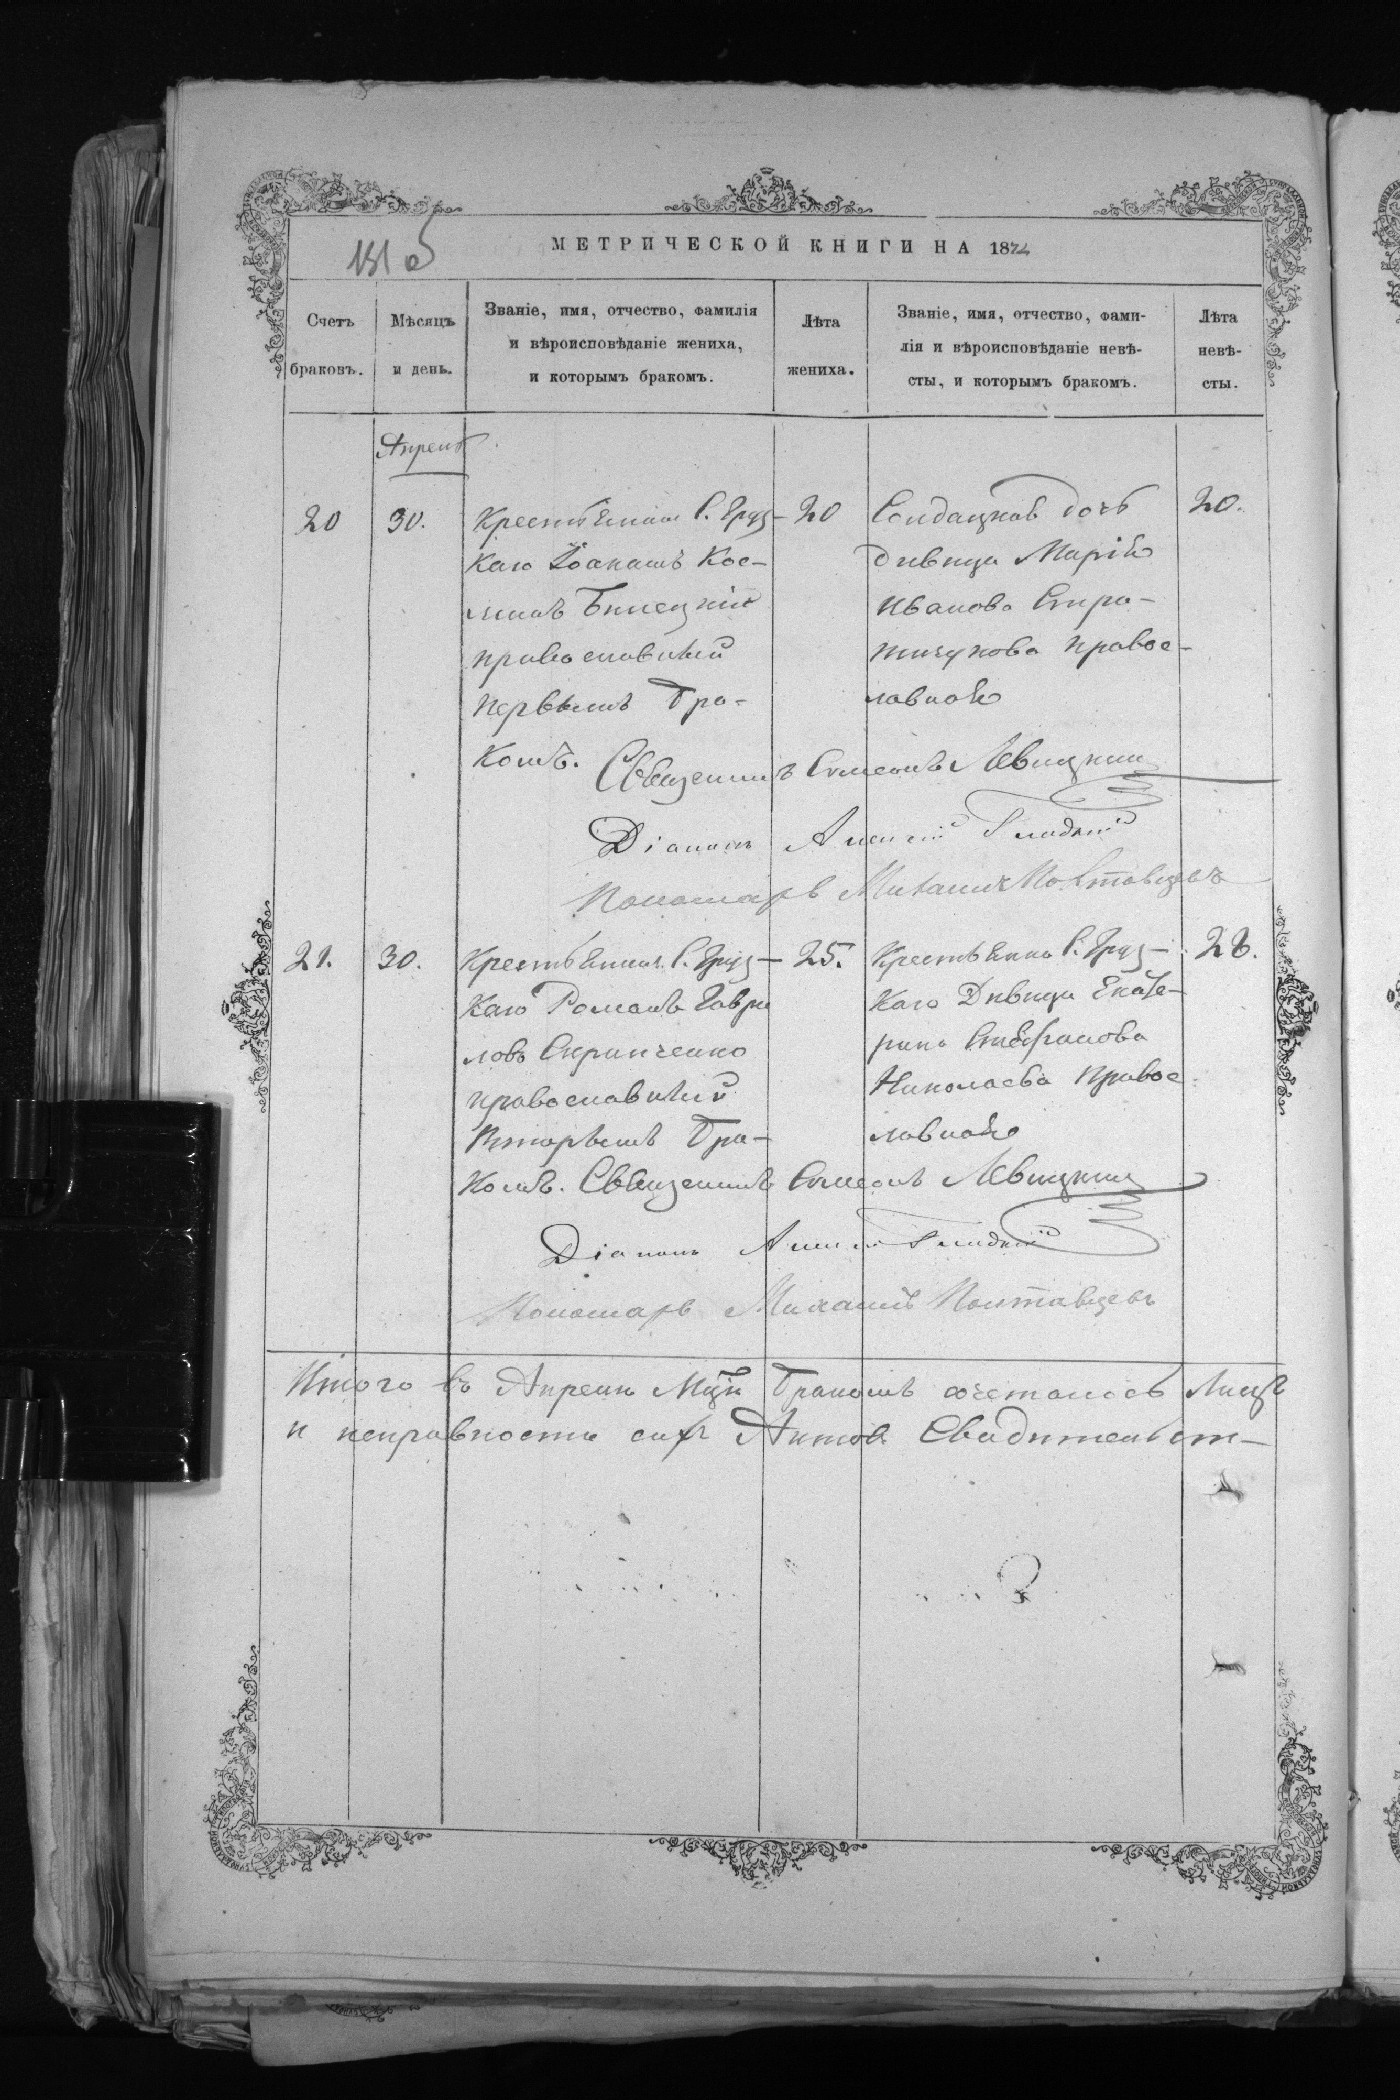 МЕТРИЧЕСКОЙ КНИГИ НА 1874
Счетъ браковъ.
Мѣсяцъ и день.
Званіе, имя, отчество, фамилія
и вѣроисповѣданіе жениха,
и которымъ бракомъ.
Лѣта жениха.
Званіе, имя, отчество, фами-
лія и вѣроисповѣданіе невѣ-
сты, и которымъ бракомъ.
Лѣта невѣ-
сты.
Апрель
20
30.
Крестьянинъ С. Груз-
каго Іоаннъ Кос-
минъ Билецкій
православный
первымъ бра-
комъ.
20
Солдацкая дочь
дивица Марія
Иванова
правос-
лавная
20.
Священникъ Симеонъ Левицкий
Діаконъ Алексій Гладкій
Пономарь Михаилъ Полтавцевъ
21.
30.
Крестьянинъ С. Груз-
каго Романъ Гаври
ловъ Скрипченко
православный
Вторымъ бра-
комъ.
25.
Крестьянка С. Груз-
каго Дивица Екате-
рина Стефанова
Николаева правос
лавная
Священникъ Симеонъ Левицкий
Діаконъ Алексій Гладкій
Пономарь Михаилъ Полтавцевъ
Итого въ Апрели Мцѣ бракомъ сочеталось лицъ
и исправность сихъ Актов Свидительст-